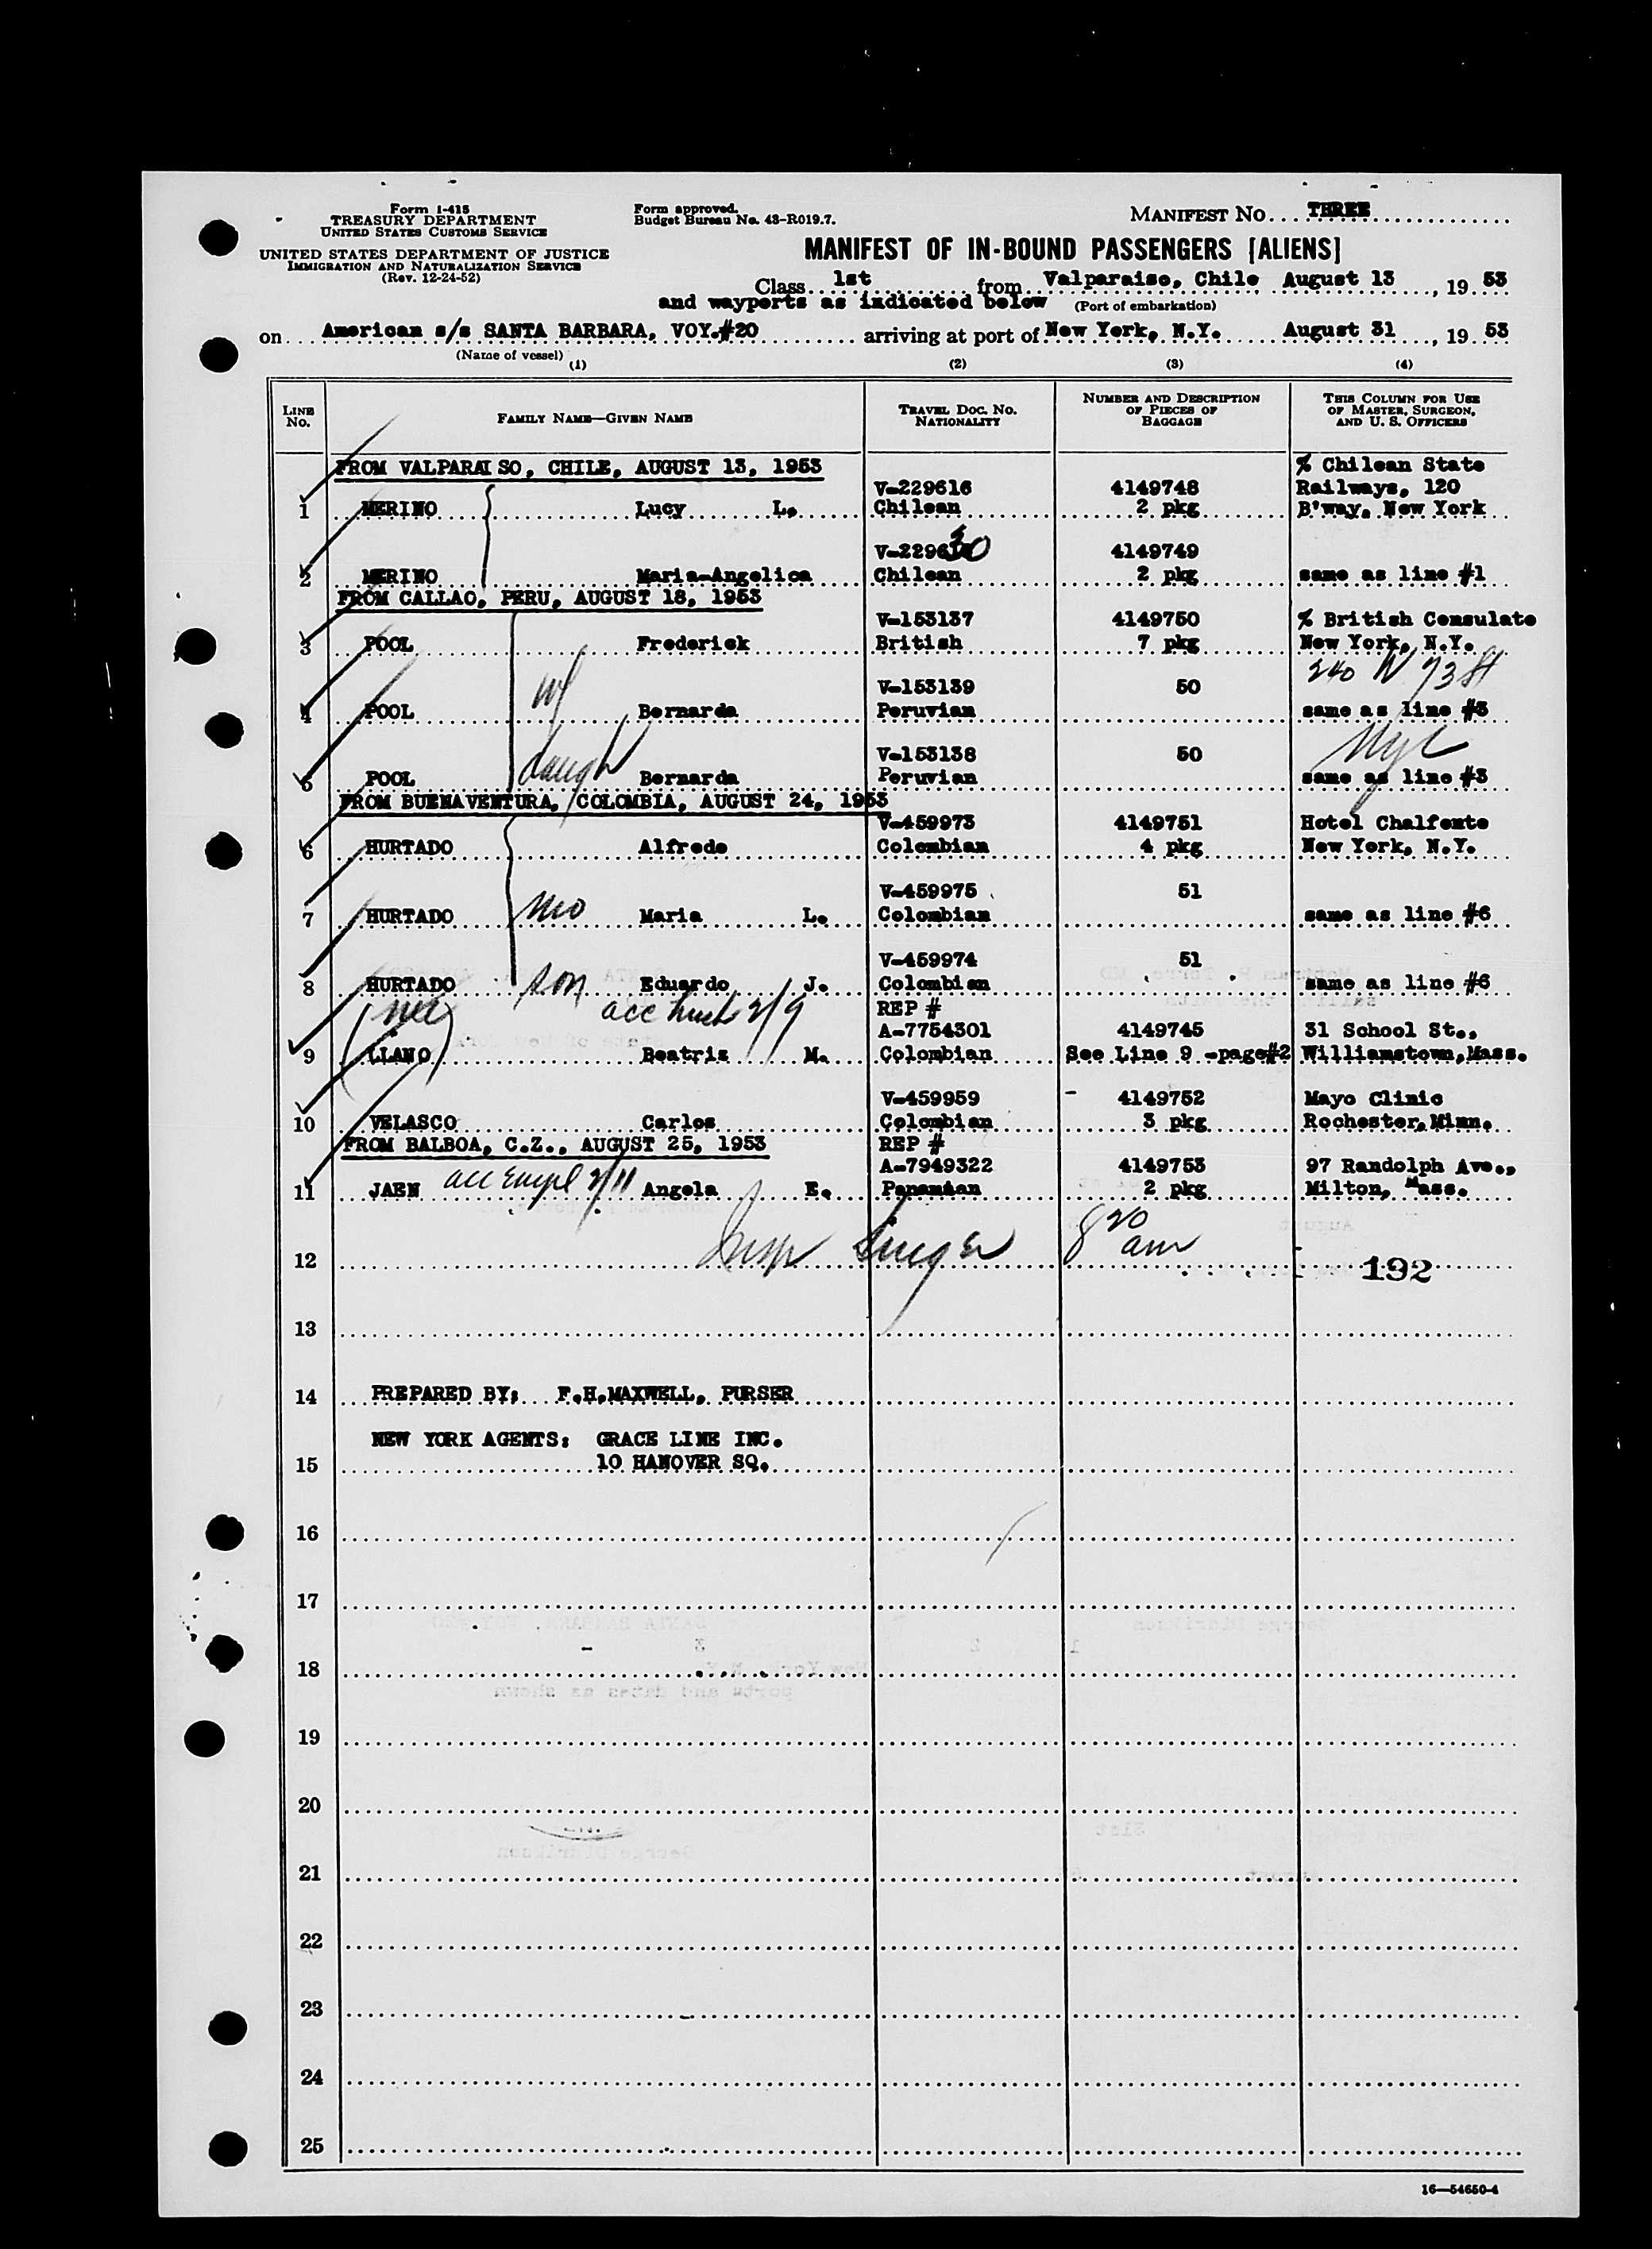 Form I-415
TREASURY DEPARTMENT
UNITED STATES CUSTOMS SERVICE
UNITED STATES DEPARTMENT OF JUSTICE
IMMIGRATION AND NATURALIZATION SERVICE
(Rev. 12-24-52)
Form approved.
Budget Bureau No. 43-R019.7.
MANIFEST NO. THREE
MANIFEST OF IN-BOUND PASSENGERS [ALIENS]
Class 1st from Valparaiso, Chile August 13, 19 53
and wayports as indicated below (Port of embarkation)
on American s/s SANTA BARBARA, VOY.#20 arriving at port of New York, N.Y. August 31, 19 53
(Name of vessel)
(1) (2) (3) (4)
LINE No. FAMILY NAME—GIVEN NAME TRAVEL DOC. NO. NATIONALITY NUMBER AND DESCRIPTION OF PIECES OF BAGGAGE THIS COLUMN FOR USE OF MASTER, SURGEON, AND U. S. OFFICERS
FROM VALPARAISO, CHILE, AUGUST 13, 1953 % Chilean State
V-229616 4149748 Railways, 120
1 MERINO Lucy L. Chilean 2 pkg B'way, New York
V-22961 30 4149749
2 MERINO Maria-Angelica Chilean 2 pkg same as line #1
FROM CALLAO, PERU, AUGUST 18, 1953
V-153137 4149750 % British Consulate
3 POOL Frederick British 7 pkg New York, N.Y.
240 W 73 St
wf V-153139 50
4 POOL Bernarda Peruvian same as line #3
NYC
daugh V-153138 50
5 POOL Bernarda Peruvian same as line #3
FROM BUENAVENTURA, COLOMBIA, AUGUST 24, 1953
V-459973 4149751 Hotel Chalfonte
6 HURTADO Alfredo Colombian 4 pkg New York, N.Y.
V-459975 51
7 HURTADO mo Maria L. Colombian same as line #6
V-459974 51
8 HURTADO son Eduardo J. Colombian same as line #6
(nee) acc husb 2/9 REP #
A-7754301 4149745 31 School St.,
9 LLANO Beatriz M. Colombian See Line 9 -page#2 Williamstown,Mass.
V-459959 4149752 Mayo Clinic
10 VELASCO Carlos Colombian 3 pkg Rochester,Minn.
FROM BALBOA, C.Z., AUGUST 25, 1953 REP #
A-7949322 4149753 97 Randolph Ave.,
11 JAEN acc empl 2/11 Angela E. Panamian 2 pkg Milton, Mass.
Insp Singer 8 20 am
12 192
13
14 PREPARED BY: F.H.MAXWELL, PURSER
NEW YORK AGENTS: GRACE LINE INC.
15 10 HANOVER SQ.
16
17
18
19
20
21
22
23
24
25
16—54650-4